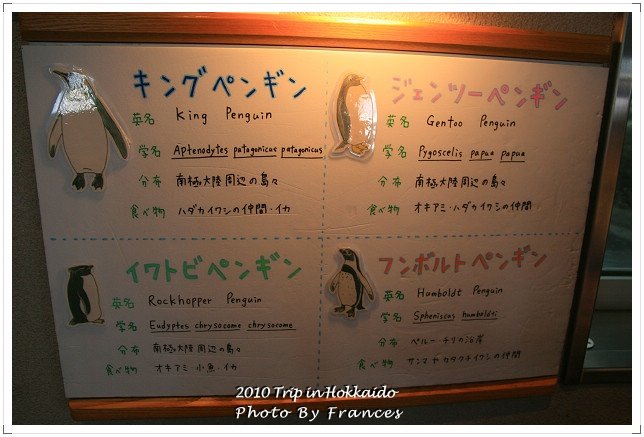 キングペンギン
英名 King Penguin
学名 Aptenodytes patagonicus patagonicus
分布 南極大陸周辺の島々
食べ物 ハダカイワシの仲間・イカ
ジェンツーペンギン
英名 Gentoo Penguin
学名 Pygoscelis papua papua
分布 南極大陸周辺の島々
食べ物 オキアミ・ハダカイワシの仲間
イワトビペンギン
英名 Rockhopper Penguin
学名 Eudyptes chrysocome chrysocome
分布 南極大陸周辺の島々
食べ物 オキアミ・小魚・イカ
フンボルトペンギン
英名 Humboldt Penguin
学名 Spheniscus humboldti
分布 ペルー・チリの沿岸
食べ物 サンマやカタクチイワシの仲間
2010 Trip in Hokkaido
Photo By Frances